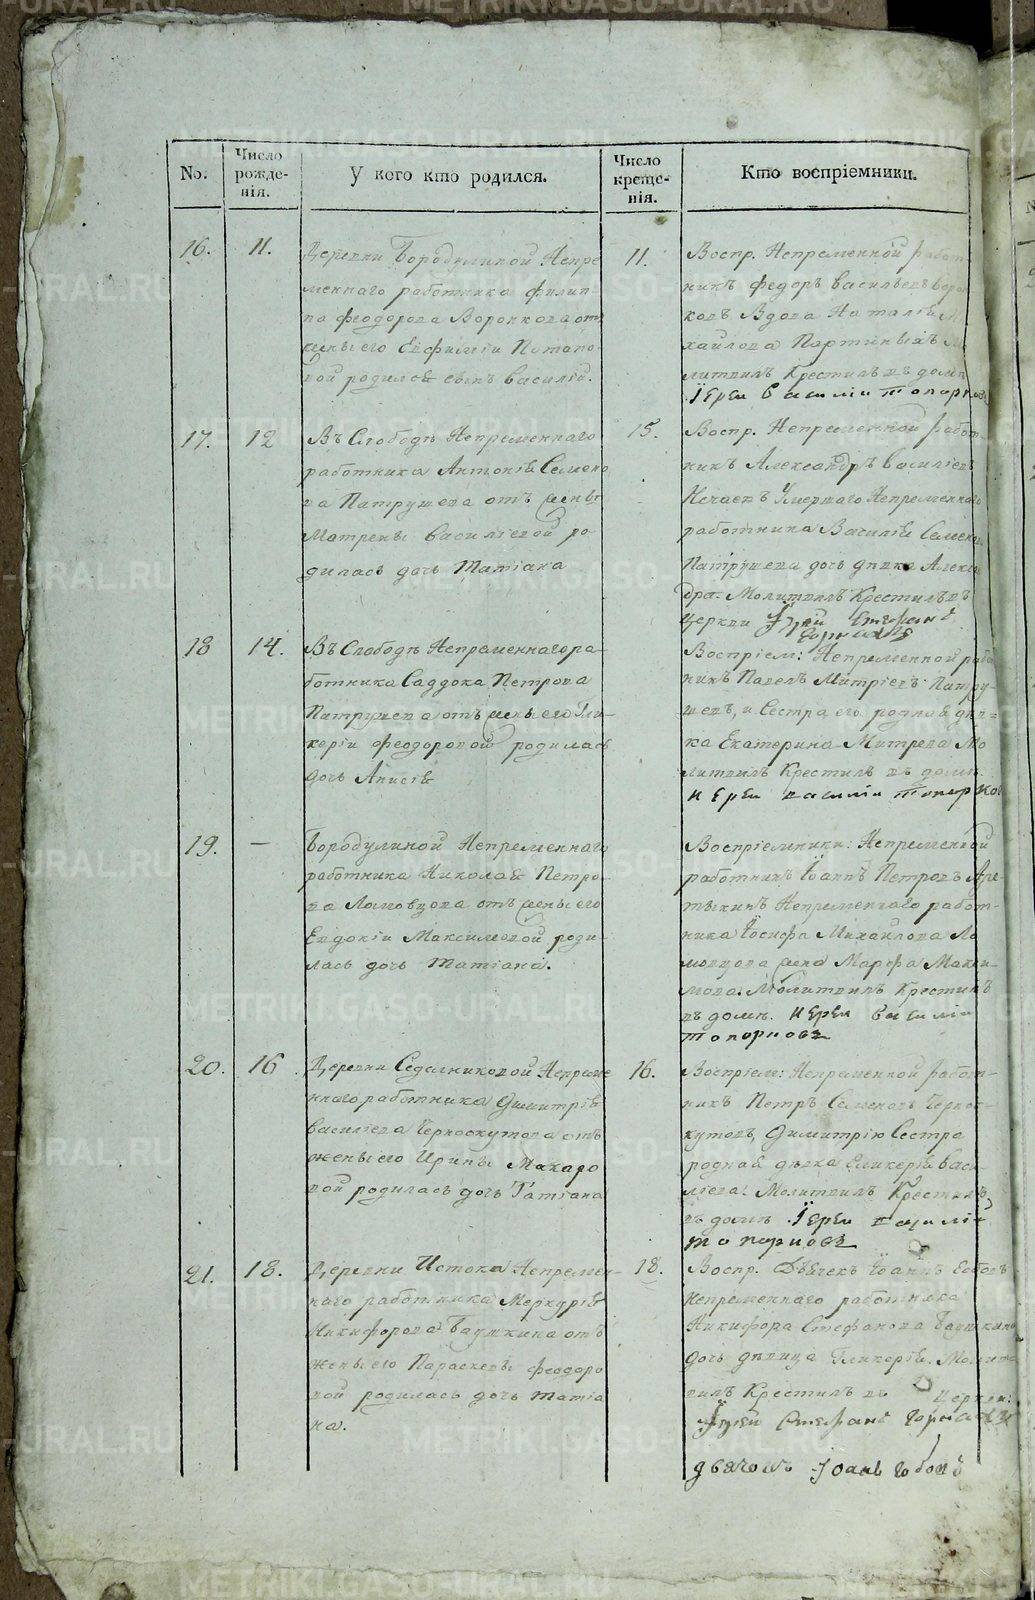 No.
Число рожде-
нія.
У кого кто родился.
Число креще-
нія.
Кто воспріемники.
16.
11.
Деревни Бородулиной Непре
меннаго работника Филип-
па Феодорова Воронкова отъ
жены его Евфиміи Потапо-
вой родился сынъ Василій.
11.
Воспр. Непременной работ
никъ Федоръ Васильевъ Ворон
ковъ Вдова Наталія М
хайлова Партиныхъ М
литвилъ Крестилъ въ доме
Іерей Василіи Топорков
17.
12
Въ Слободе Непременнаго
работника Антонія Семено
ва Патрушева отъ жены
Матрены Василіевой ро-
дилась дочь Татіана
15.
Воспр. Непременной работ-
никъ Александръ Василіевъ
Нечаевъ Умершаго Непременнаго
работника Василія Семено
Патрушева дочь девка Алекса
дра. Молитвилъ Крестилъ въ
церкви Іерей Стефанъ
18
14.
Въ Слободе Непременнаго ра-
ботника Саддока Петрова
Патрушева отъ жены его Гли-
керіи Феодоровой родилась
дочь Анисія
Воспріем: Непременной рабо
никъ Павелъ Митріевъ Патру-
шевъ, и Сестра его родная дев-
ка Екатерина Митрева Мо
литвилъ Крестилъ въ доме.
Иерей василіи топорков
19.
—
Бородулиной Непременнаго
работника Николая Петро-
ва Ломовцова отъ жены его
Евдокіи Максимовой роди-
лась дочь Татіана.
Воспріемники: Непременной
работникъ Іоаннъ Петровъ Аре
тыкинъ Непременнаго работ-
ника Іосифа Михайлова Ло
мовцова жена Марфа Макси-
мова. Молитвилъ Крестилъ
въ доме. Иерей Василіи
топорковъ
20.
16
Деревни Седельниковой Непреме
ннаго работника Димитрія
Василіева Черноскутова отъ
жены его Ирины Макаро
вой родилась дочь Татіана
16.
Воспріем: Непременной работ-
никъ Петръ Семеновъ Чернос-
кутовъ, Димитрію Сестра
родная девка Гликерія Васи-
ліева. Молитвилъ Крестилъ
въ доме Іерей василіи
топорковъ
21.
18.
Деревни Истока Непремен-
наго работника Меркурія
Никифорова Баушкина отъ
жены его Параскевы Феодоро
вой родилась дочь Татіа
на.
18.
Воспр. Дьячекъ Іоаннъ
Непременнаго работника
Никифора Стефанова Баушкина
дочь девица Гликерія. Молит
вилъ Крестилъ въ Церкви:
Іерей Стефанъ
дьячокъ Іоанъ
METRIKI.GASO-URAL.RU